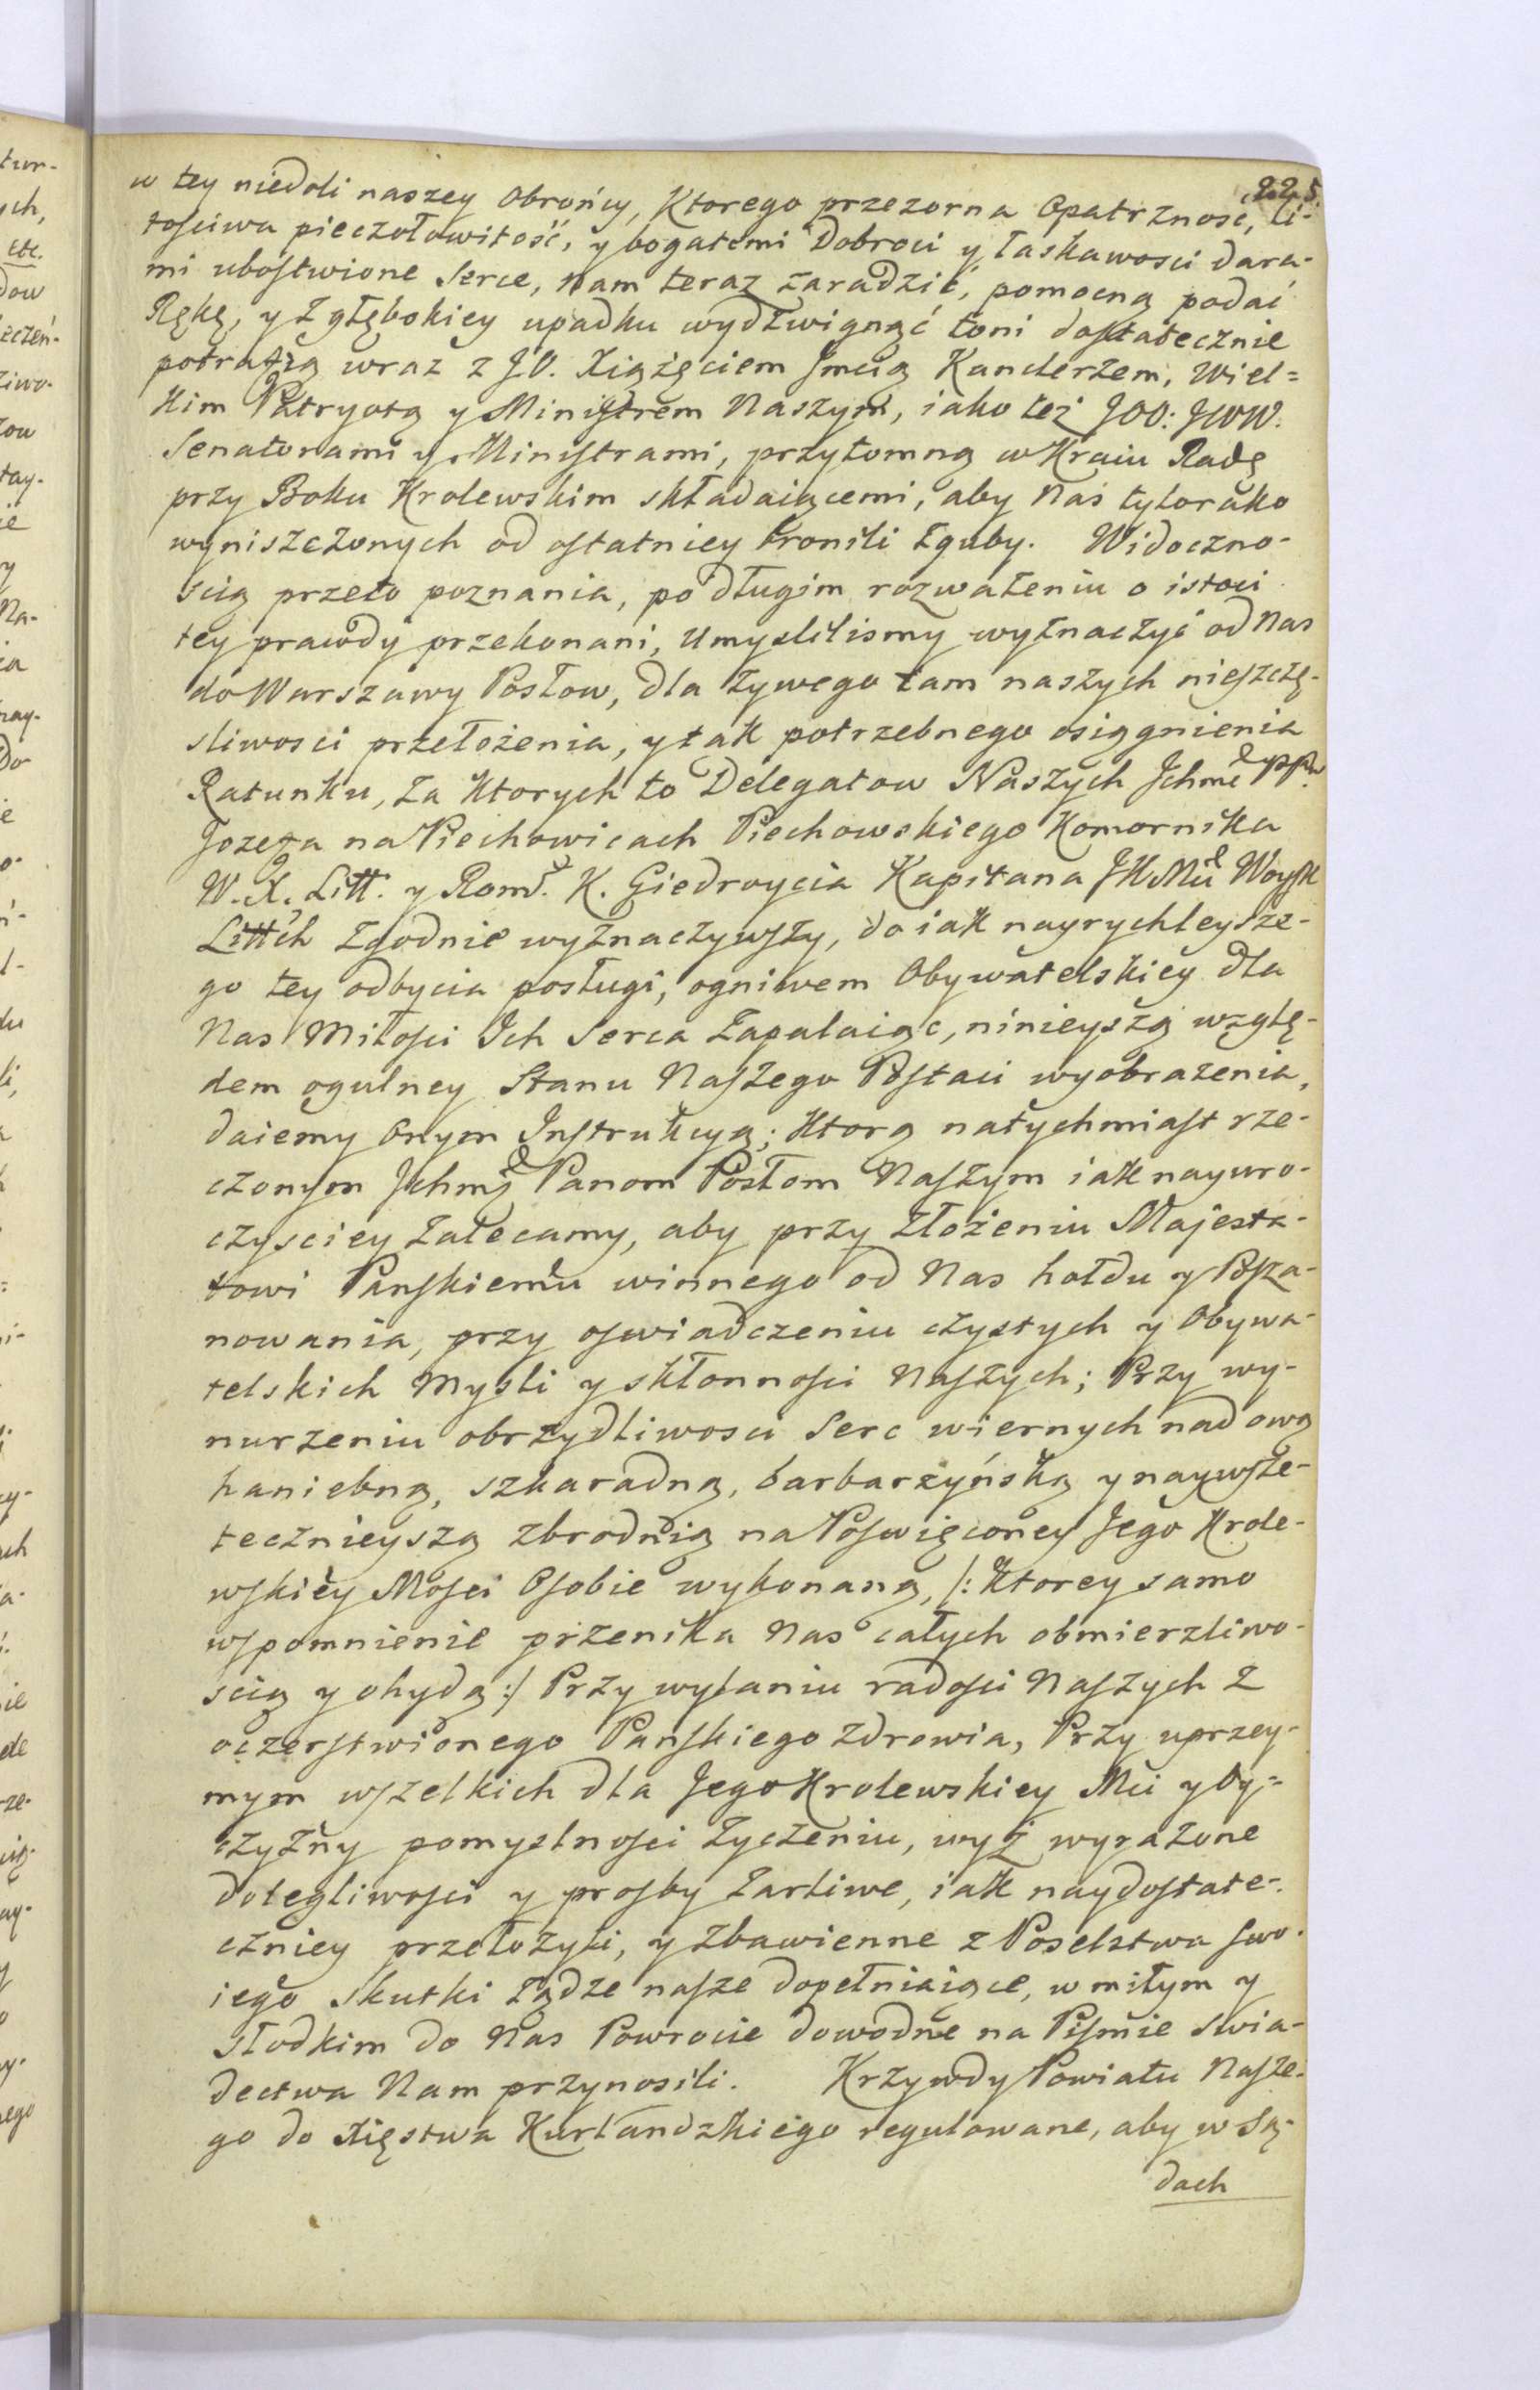 225
w tey niedoli naszey Obrońcy, Ktorego przezorna Opatrznosć, li-
tosciwa pieczołowitość, y bogatemi Dobroci y łaskawosci dara-
mi ubostwione Serce, Nam teraz zaradzić, pomocną podać
Rękę, y z głębokiey upadku wydzwignąć toni dostatecznie
potrafią wraz z J.O. Xiążęciem Jmcią Kanclerzem, Wiel=
kim Patryotą y Ministrem Naszym, iako też JOO: JWW.
Senatorami y Ministrami, przytomną w Kraiu Radę
przy Boku Krolewskim składaiącemi, aby Nas tylorako
wyniszczonych od ostatniey bronili zguby. Widoczno-
scią przeto poznania, po długim rozważeniu o istoci
tey prawdy przekonani, Umyslilismy wyznaczyć od Nas
do Warszawy Posłow, dla żywego tam naszych nieszczę-
sliwosci przełożenia, y tak potrzebnego osiągnienia
Ratunku, za Ktorych to Delegatow Naszych Jchmć PPw
Jozefa na Piechowicach Piechowskiego Komornika
W. X. Litt. y Romd. K. Giedroycia Kapitana JKMći Woysk
Littch zgodnie wyznaczywszy, do iak nayrychleysze-
go tey odbycia posługi, ogniwem Obywatelskiey dla
Nas Miłosci Ich Serca zapalaiąc, ninieyszą wzglę-
dem ogulney Stanu Naszego Postaci wyobrazenia,
daiemy Onym Instrukcyą; Ktorą natychmiast rze-
czonym Jchmć Panom Posłom Naszym iak nayuro-
czysciey zalecamy, aby przy złożeniu Majesta-
towi Panskiemu winnego od Nas hołdu y Posza-
nowania, przy oswiadczeniu czystych y Obywa-
telskich Mysli y skłonnosci Naszych; Przy wy-
nurzeniu obrzydliwosci Serc wiernych nad ową
haniebną, szkaradną, barbarzyńską y naywsze-
tecznieyszą zbrodnią na Poswięconey Jego Krole-
wskiey Mosci Osobie wykonaną, /: Ktorey samo
wspomnienie przenika Nas całych obmierzliwo-
scią y ohydą :/ Przy wylaniu radosci Naszych z
oczerstwionego Panskiego zdrowia, Przy uprzey-
mym wszelkich dla Jego Krolewskiey Mci y Oy=
czyzny pomyslnosci życzeniu, wyż wyrażone
dolegliwosci y prosby żarliwe, iak naydostate-
czniey przełożyli, y zbawienne z Poselstwa swo-
iego skutki żądze nasze dopełniaiące, w miłym y
słodkim do Nas Powrocie dowodne na Pismie swia-
dectwa Nam przynosili. Krzywdy Powiatu Nasze-
go do Xięstwa Kurlandzkiego regulowane, aby w Są-
dach